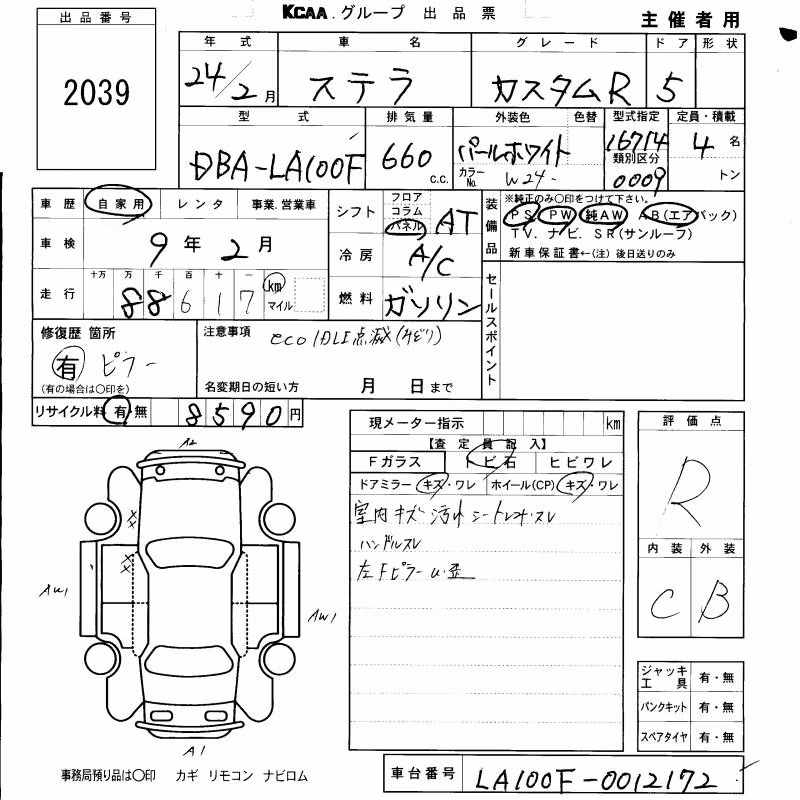 KCAA.グループ 出品票
主催者用
出品番号
2039
年式 車名 グレード ドア 形状
24/2月 ステラ カスタムR 5
型式 排気量 外装色 色替 型式指定 定員・積載
DBA-LA100F 660 c.c. パールホワイト 16714 4名
カラーNo. W24 類別区分 0009 トン
車歴 自家用 レンタ 事業.営業車
シフト フロア コラム パネル AT
装備品 ※純正のみ〇印をつけて下さい。
PS PW 純AW AB(エアバック)
TV. ナビ. SR(サンルーフ)
新車保証書←(注)後日送りのみ
車検 9年2月
冷房 A/C
走行 十万 万 千 百 十 一
88617 km マイル
燃料 ガソリン
セールスポイント
修復歴 箇所
有 ピラー
(有の場合は〇印を)
注意事項 eco IDLE点滅(みどり)
名変期日の短い方 月 日まで
リサイクル料 有・無 8590円
現メーター指示 km
【査定員記入】
Fガラス トビ石 ヒビワレ
ドアミラー キズ・ワレ ホイール(CP) キズ・ワレ
室内キズ 汚れ シート スレ
ハンドルスレ
左Fピラー
評価点
R
内装 外装
C B
A2
XX
XX
AW1
AW1
A1
ジャッキ工具 有・無
パンクキット 有・無
スペアタイヤ 有・無
事務局預り品は〇印 カギ リモコン ナビロム
車台番号 LA100F-0012172